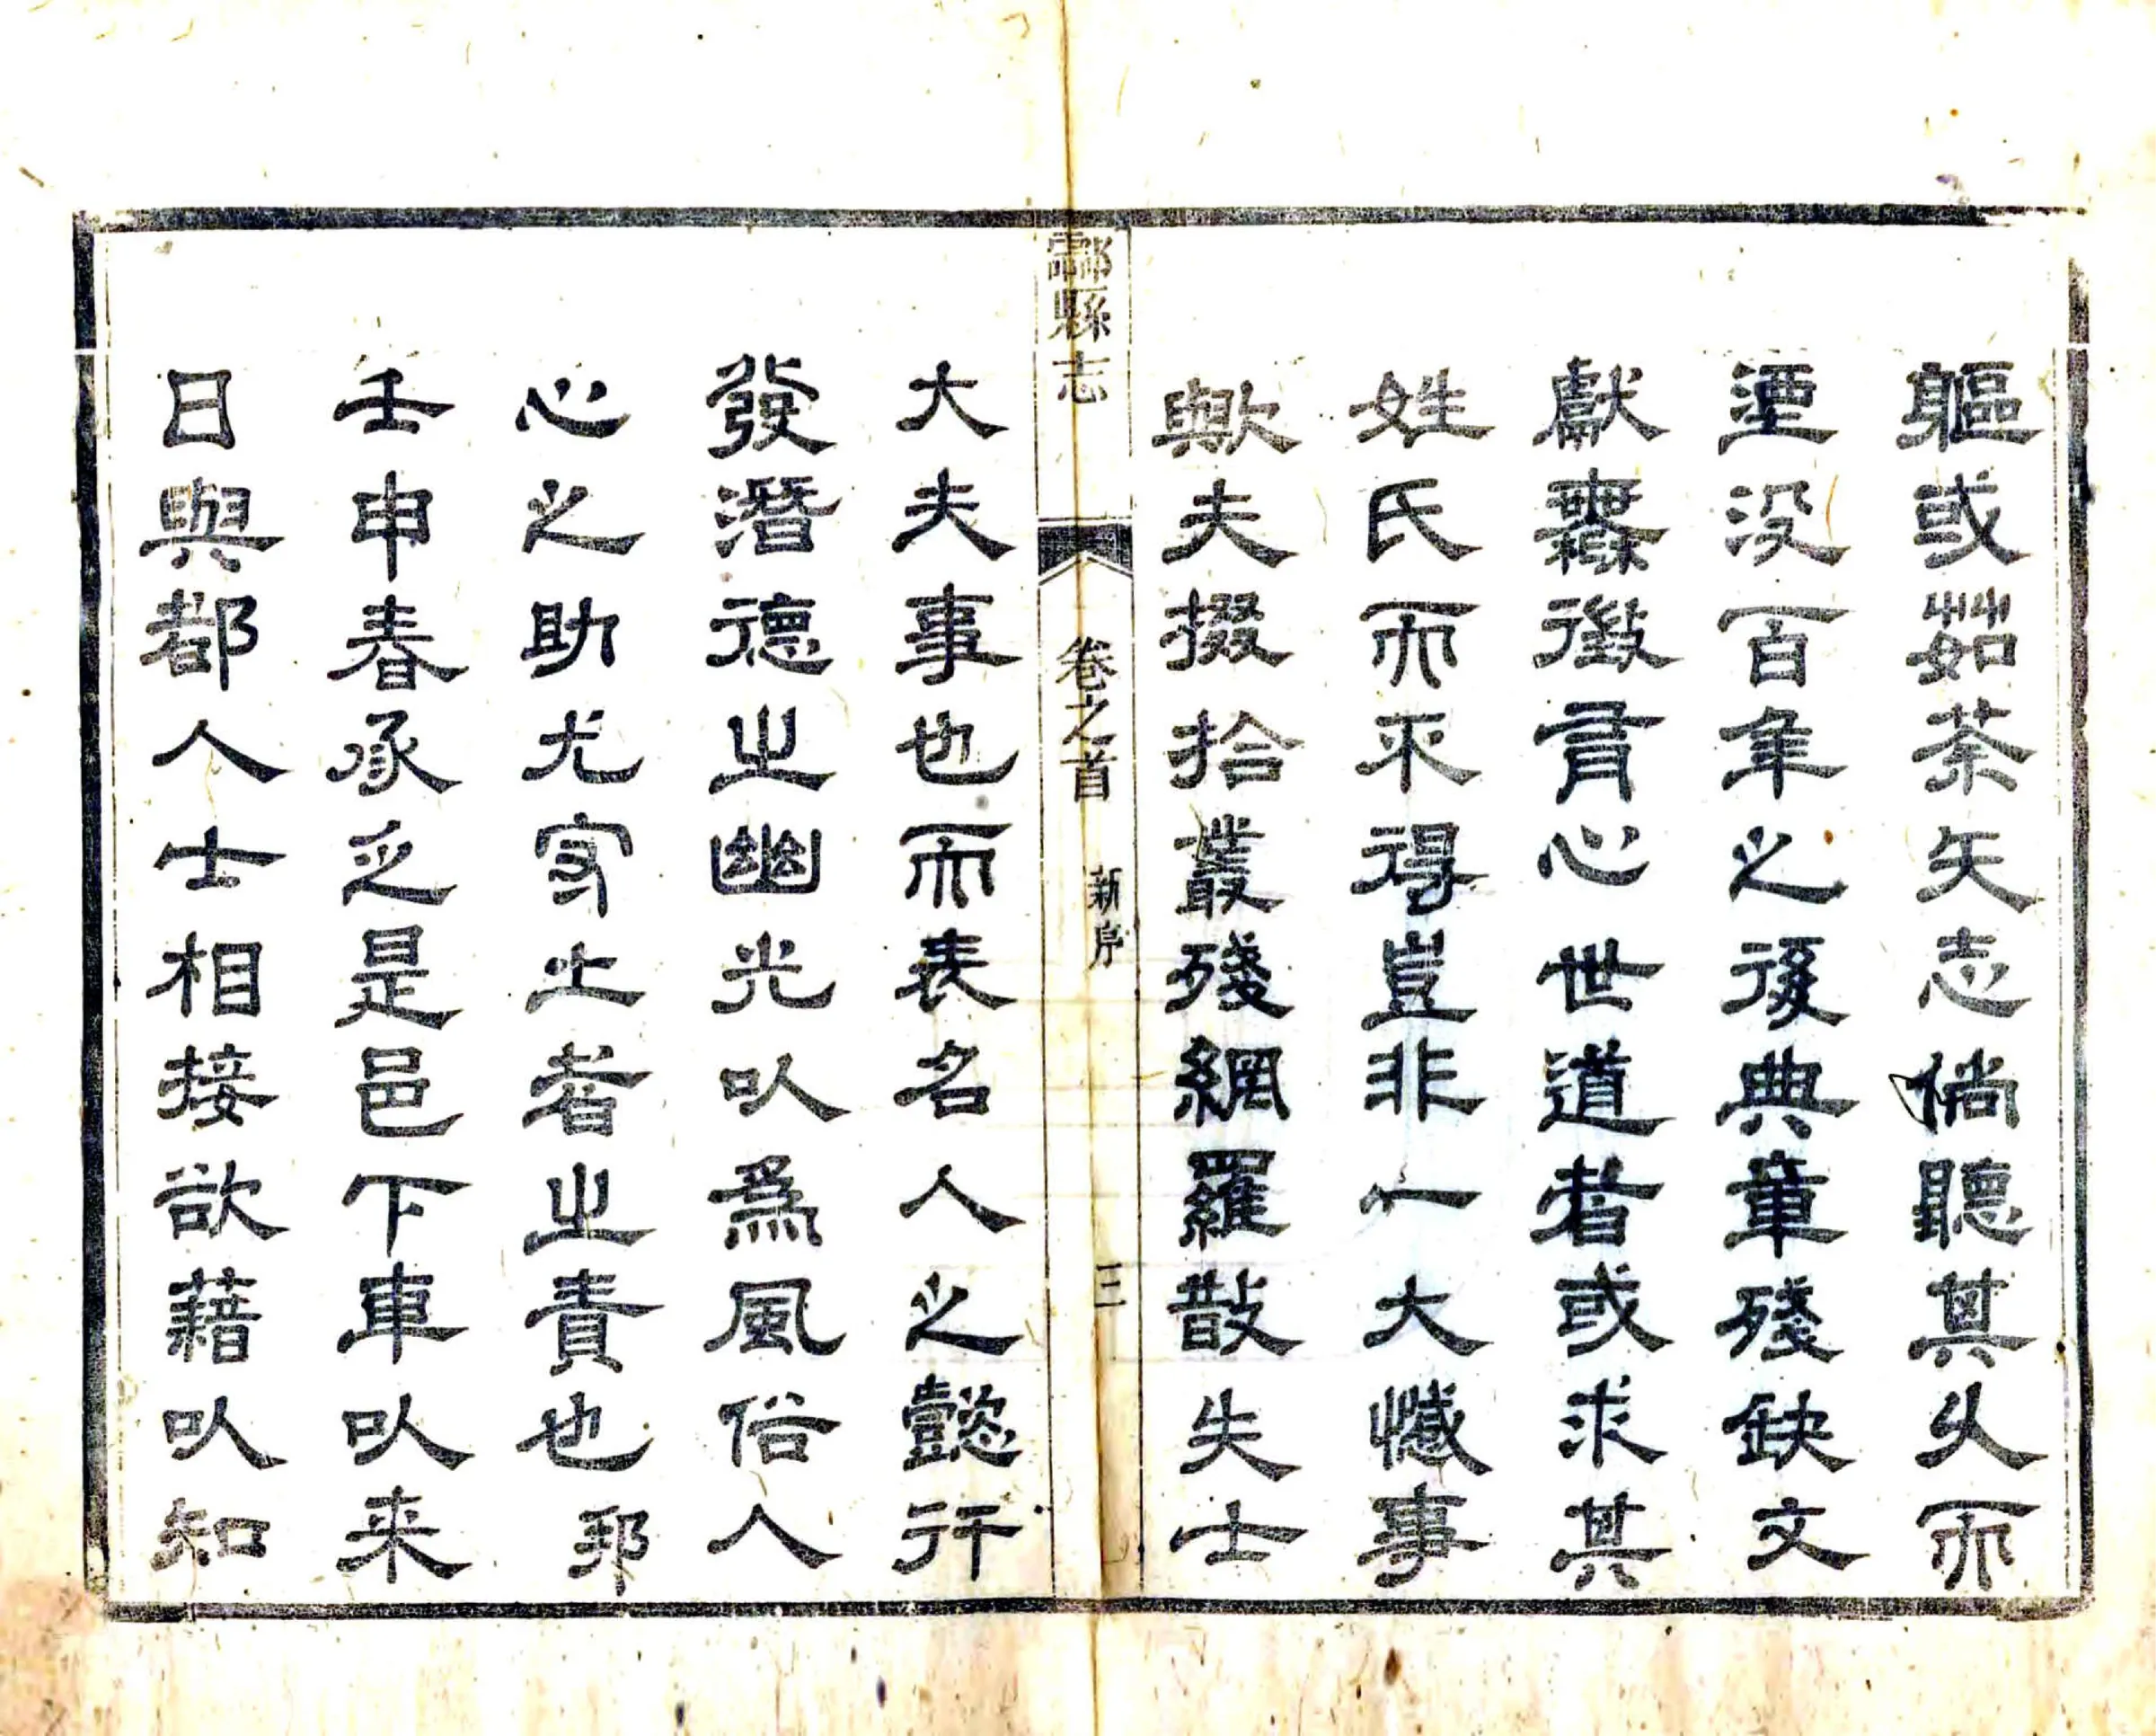 軀或茹荼矢志倘聽其久而
湮没百年之後典章殘缺文
獻無徵有心世道者或求其
姓氏而不得豈非一大憾事
歟夫掇拾叢殘網羅散失士
酃縣志 卷之首 新序 三
大夫事也而表名人之懿行
發潛德之幽光以爲風俗人
心之助尤守土者之責也邦
壬申春承乏是邑下車以来
日與都人士相接欲藉以知